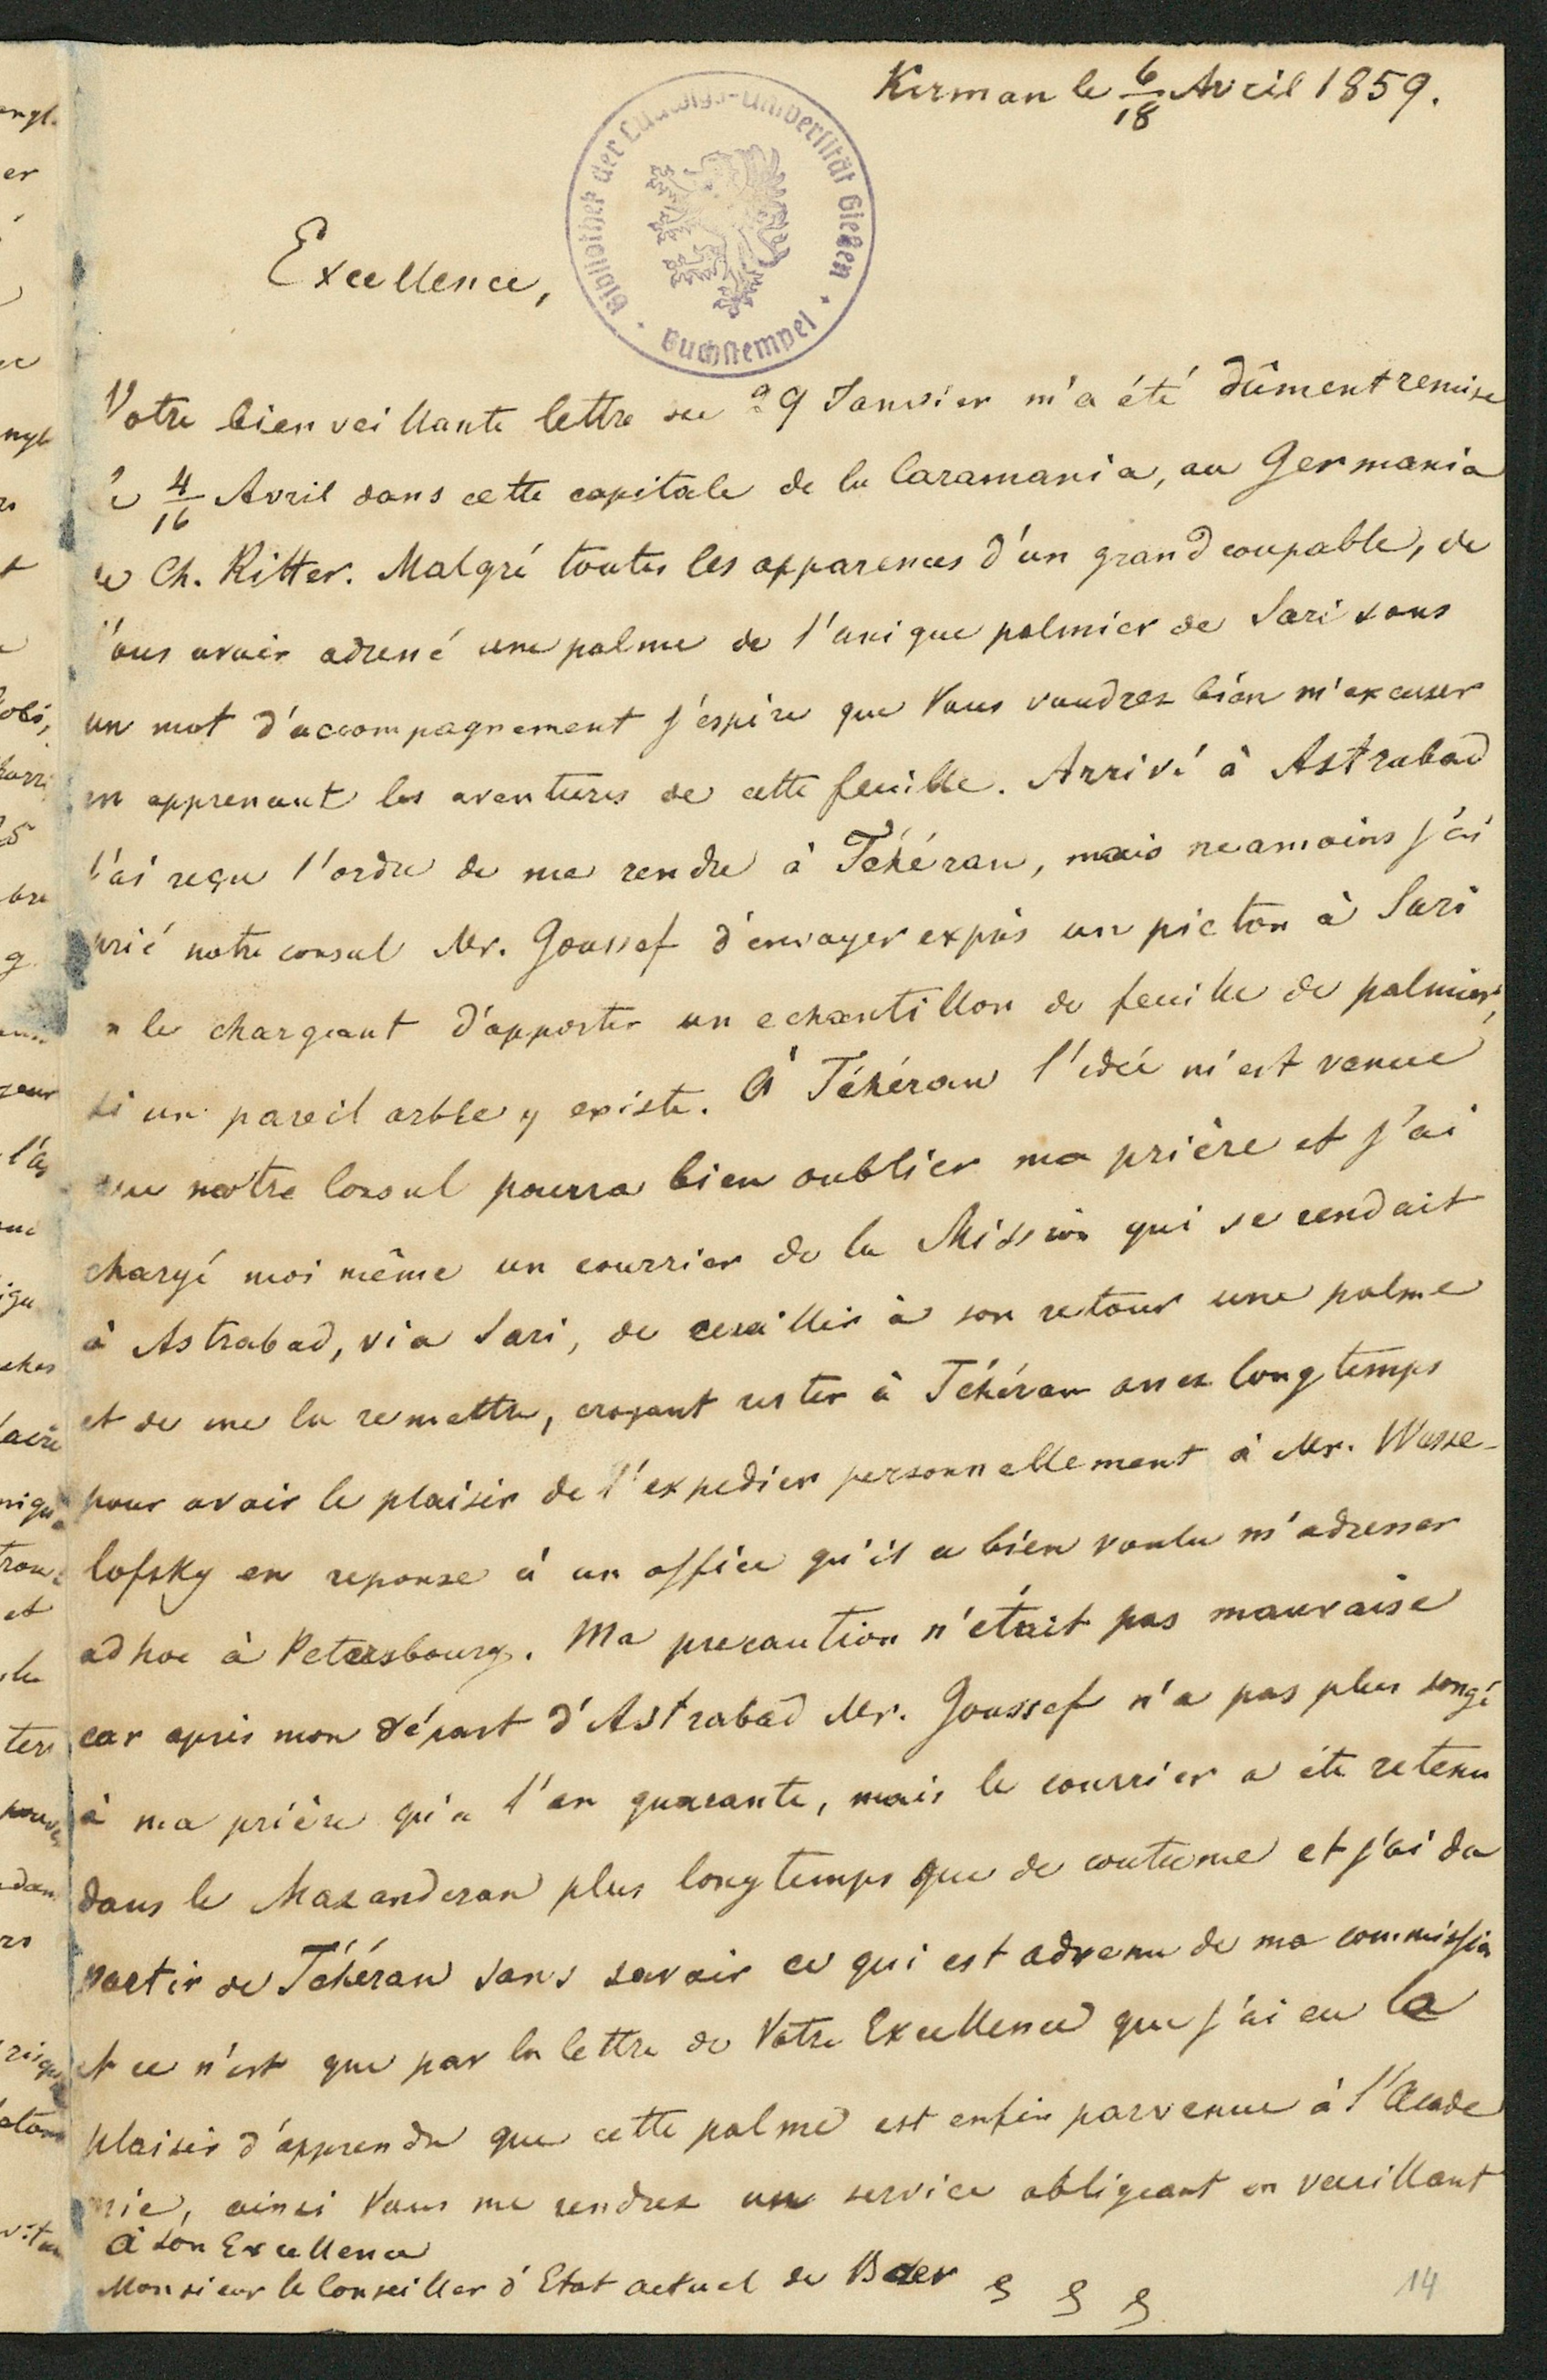 Kerman le 6/18 Avril 1859.
Bibliothek der Ludwigs-Universität Gießen
Buchstempel
Excellence,
Votre bienveillante lettre du 29 Janvier m'a été dûment remise
le 4/16 Avril dans cette capitale de la Caramania, ou Germania
de Ch. Ritter. Malgré toutes les apparences d'un grand coupable, de
Vous avoir adressé une palme de l'unique palmier de Sari sans
un mot d'accompagnement j'espère que Vous voudrez bien m'excuser
en apprenant les aventures de cette feuille. Arrivé à Astrabad
j'ai reçu l'ordre de me rendre à Téhéran, mais neamoins j'ai
prié notre consul Mr. Goussef d'envoyer exprès un picton à Sari
en le chargeant d'apporter un echantillon de feuille de palmier,
si un pareil arbre y existe. A Téhéran l'idée m'est venue
que notre Consul pourra bien oublier ma prière et j'ai
chargé moi même un courrier de la Mission qui se rendait
à Astrabad, via Sari, de cueillir à son retour une palme
et de me la remettre, croyant rester à Téhéran assez longtemps
pour avoir le plaisir de l'expedier personnellement à Mr. Wesse-
lofsky en reponse à un office qu'il a bien voulu m'adresser
ad hoc à Petersbourg. Ma precaution n'était pas mauvaise
car après mon départ d'Astrabad Mr. Goussef n'a pas plus songé
à ma prière qu'a l'an quarante, mais le courrier a été retenu
dans le Mazanderan plus longtemps que de coutume et j'ai du
partir de Téhéran sans savoir ce qui est advenu de ma commission
et ce n'est que par la lettre de Votre Excellence que j'ai eu le
plaisir d'apprendre que cette palme est enfin parvenue à l'Acade
mie, ainsi Vous me rendrez un service obligeant en veuillant
à Son Excellence
Monsieur le Conseiller d'Etat actuel de Baer
14